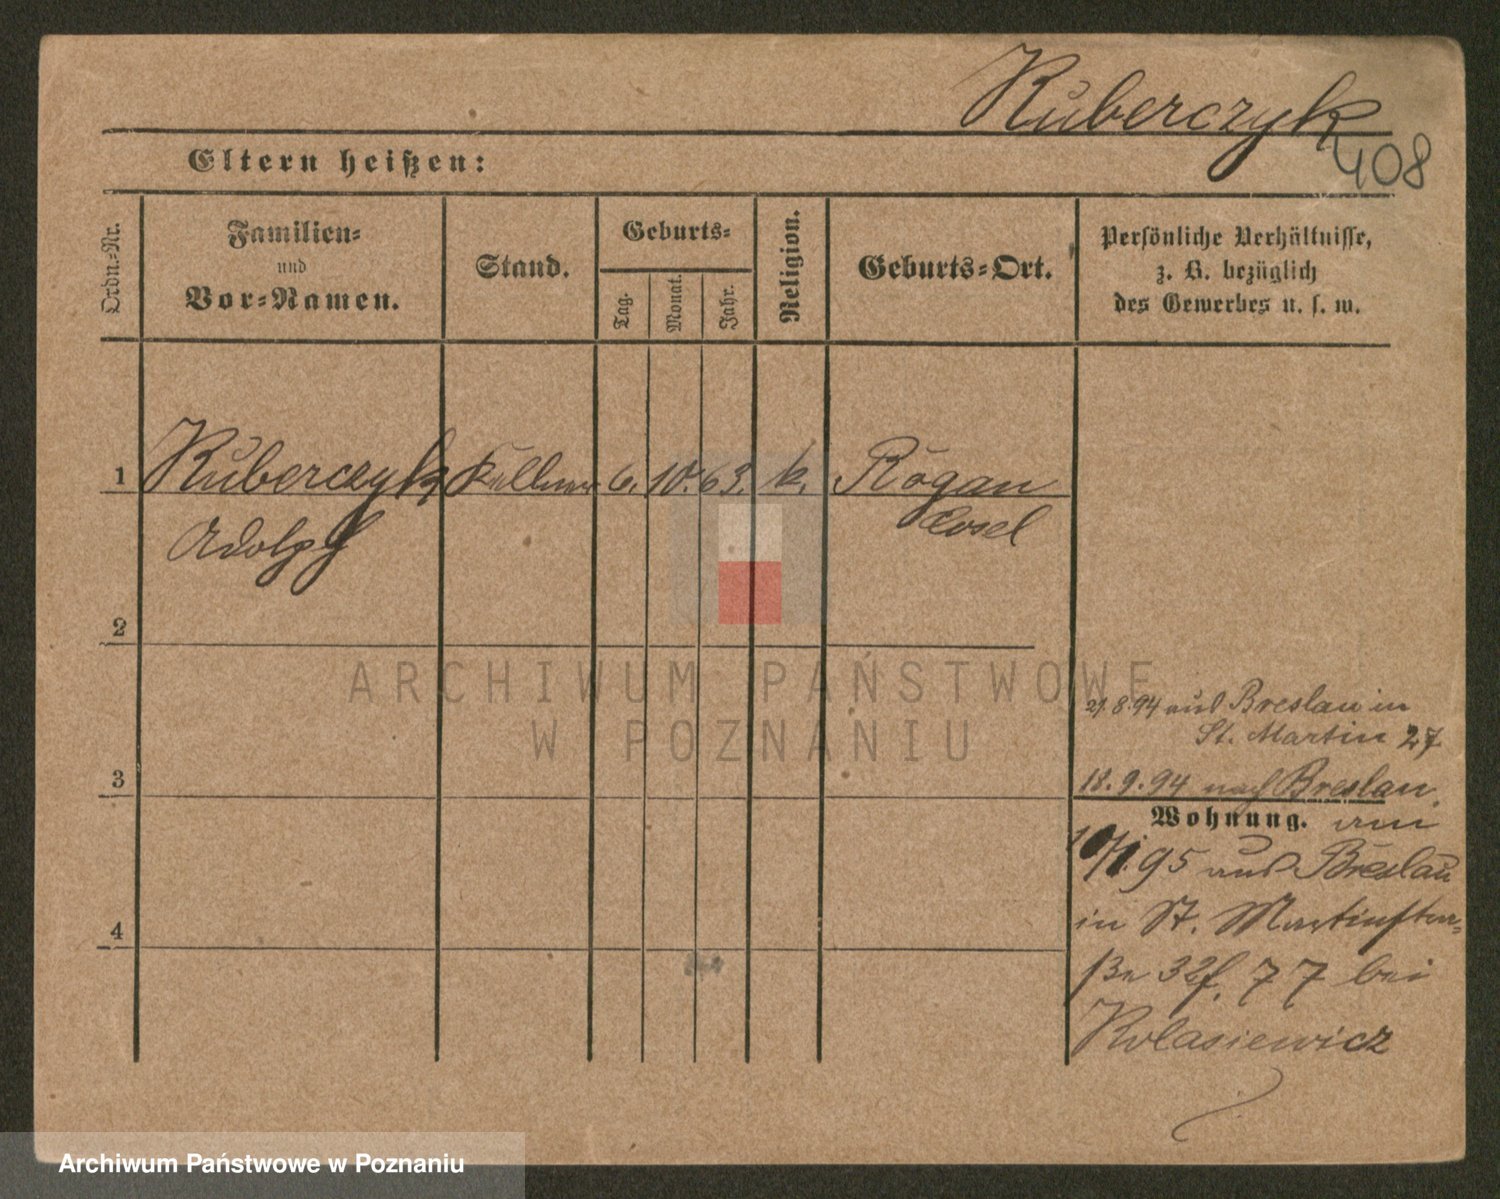 Kuberczyk
408
Eltern heißen:
Ordn.-Nr.
Familien-
und
Vor-Namen.
Stand.
Geburts-
Tag.
Monat.
Jahr.
Religion.
Geburts-Ort.
Persönliche Verhältnisse,
z. B. bezüglich
des Gewerbes u. s. w.
1 Kuberczyk Kellner 6. 10. 63. k. Rogau
Adolph Cosel
2
3
4
21.8.94 aus Breslau in
St. Martin 27
18.9.94 nach Breslau.
Wohnung. am
10/1.95 aus Breslau
in St. Martinstra-
ße 32f, 77 bei
Kolasiewicz
ARCHIWUM PAŃSTWOWE
W POZNANIU
Archiwum Państwowe w Poznaniu